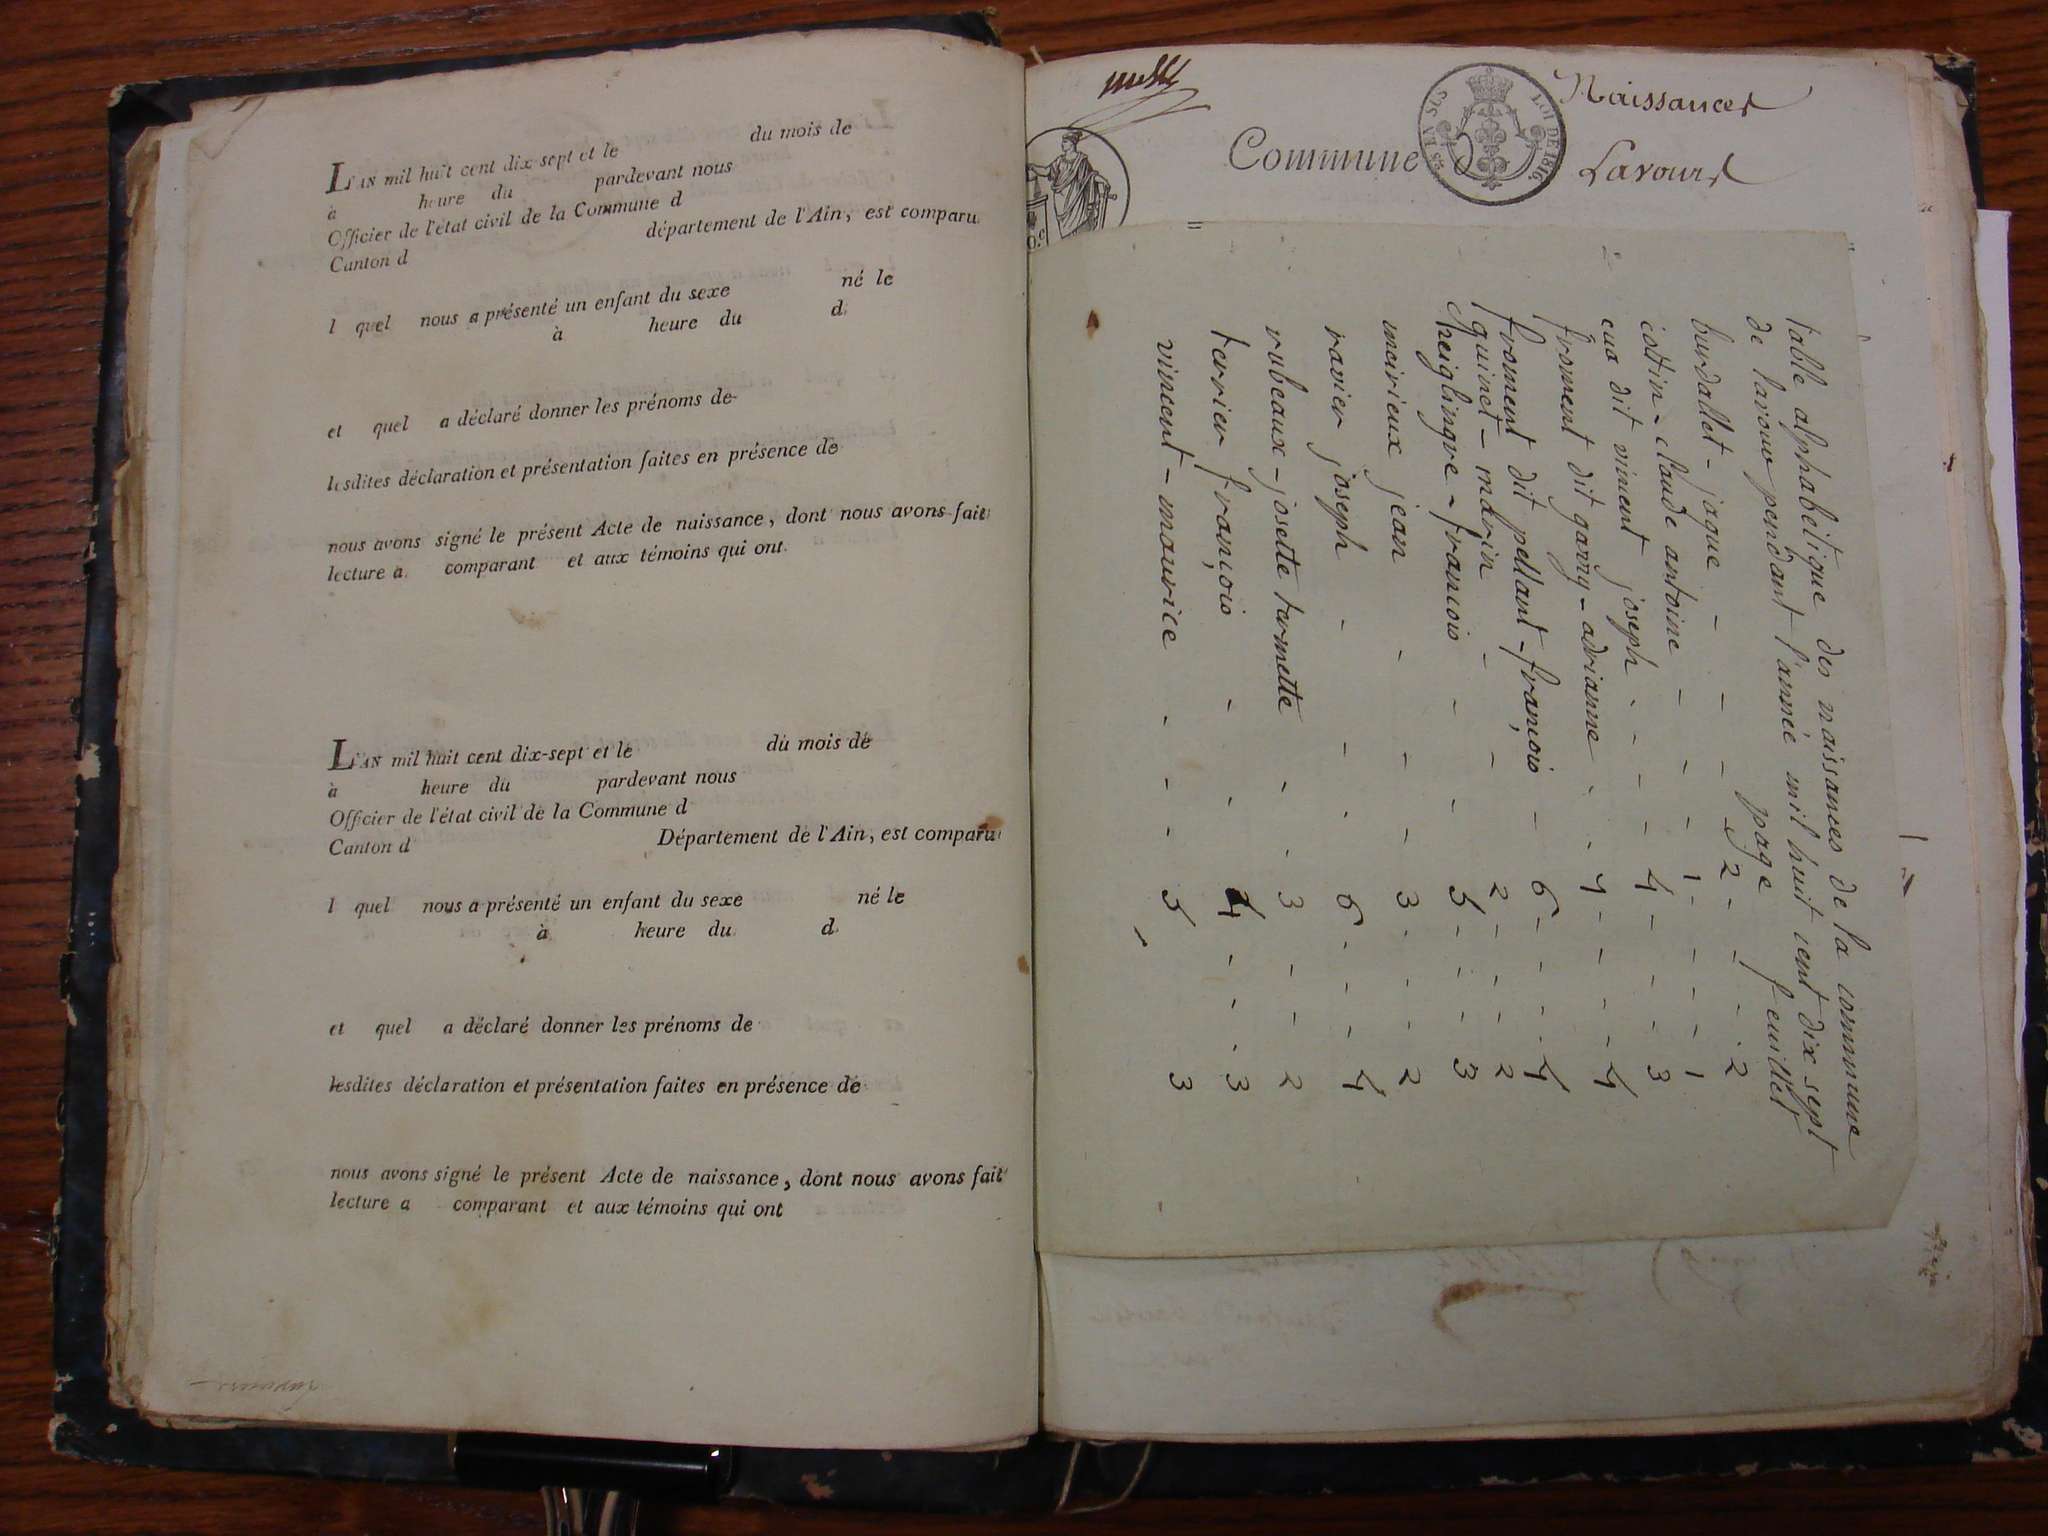 L'AN mil huit cent dix-sept et le du mois de
à heure du pardevant nous
Officier de l'état civil de la Commune d
Canton d département de l'Ain, est comparu
l quel nous a présenté un enfant du sexe né le
à heure du d
et quel a déclaré donner les prénoms de
lesdites déclaration et présentation faites en présence de
nous avons signé le présent Acte de naissance, dont nous avons fait
lecture a comparant et aux témoins qui ont
L'AN mil huit cent dix-sept et le du mois de
à heure du pardevant nous
Officier de l'état civil de la Commune d
Canton d Département de l'Ain, est comparu
l quel nous a présenté un enfant du sexe né le
à heure du d
et quel a déclaré donner les prénoms de
lesdites déclaration et présentation faites en présence de
nous avons signé le présent Acte de naissance, dont nous avons fait
lecture a comparant et aux témoins qui ont
Naissances
Commune d Lavours
LOI DE 1816.
table alphabetique des naissances de la commune
de lavour pendant l'année mil huit cent dix sept
page feuillet
burdallet - jaque - - - 2 - - - 2
cottin - claude antoine - - - 1 - - - 1
cua dit vincent joseph - - - - 4 - - - 3
froment dit garry - adrianne - - 7 - - - 4
froment dit pellant - françois - 6 - - - 4
guinet - - - 2 - - - 2
- francois - - 5 - - - 3
meirieux jean - - - 3 - - - 2
ravier joseph - - - 6 - - - 4
rubeaux - josette - - 3 - - - 2
terrier françois - - 4 - - - 3
vincent - maurice - - - 5 - 3